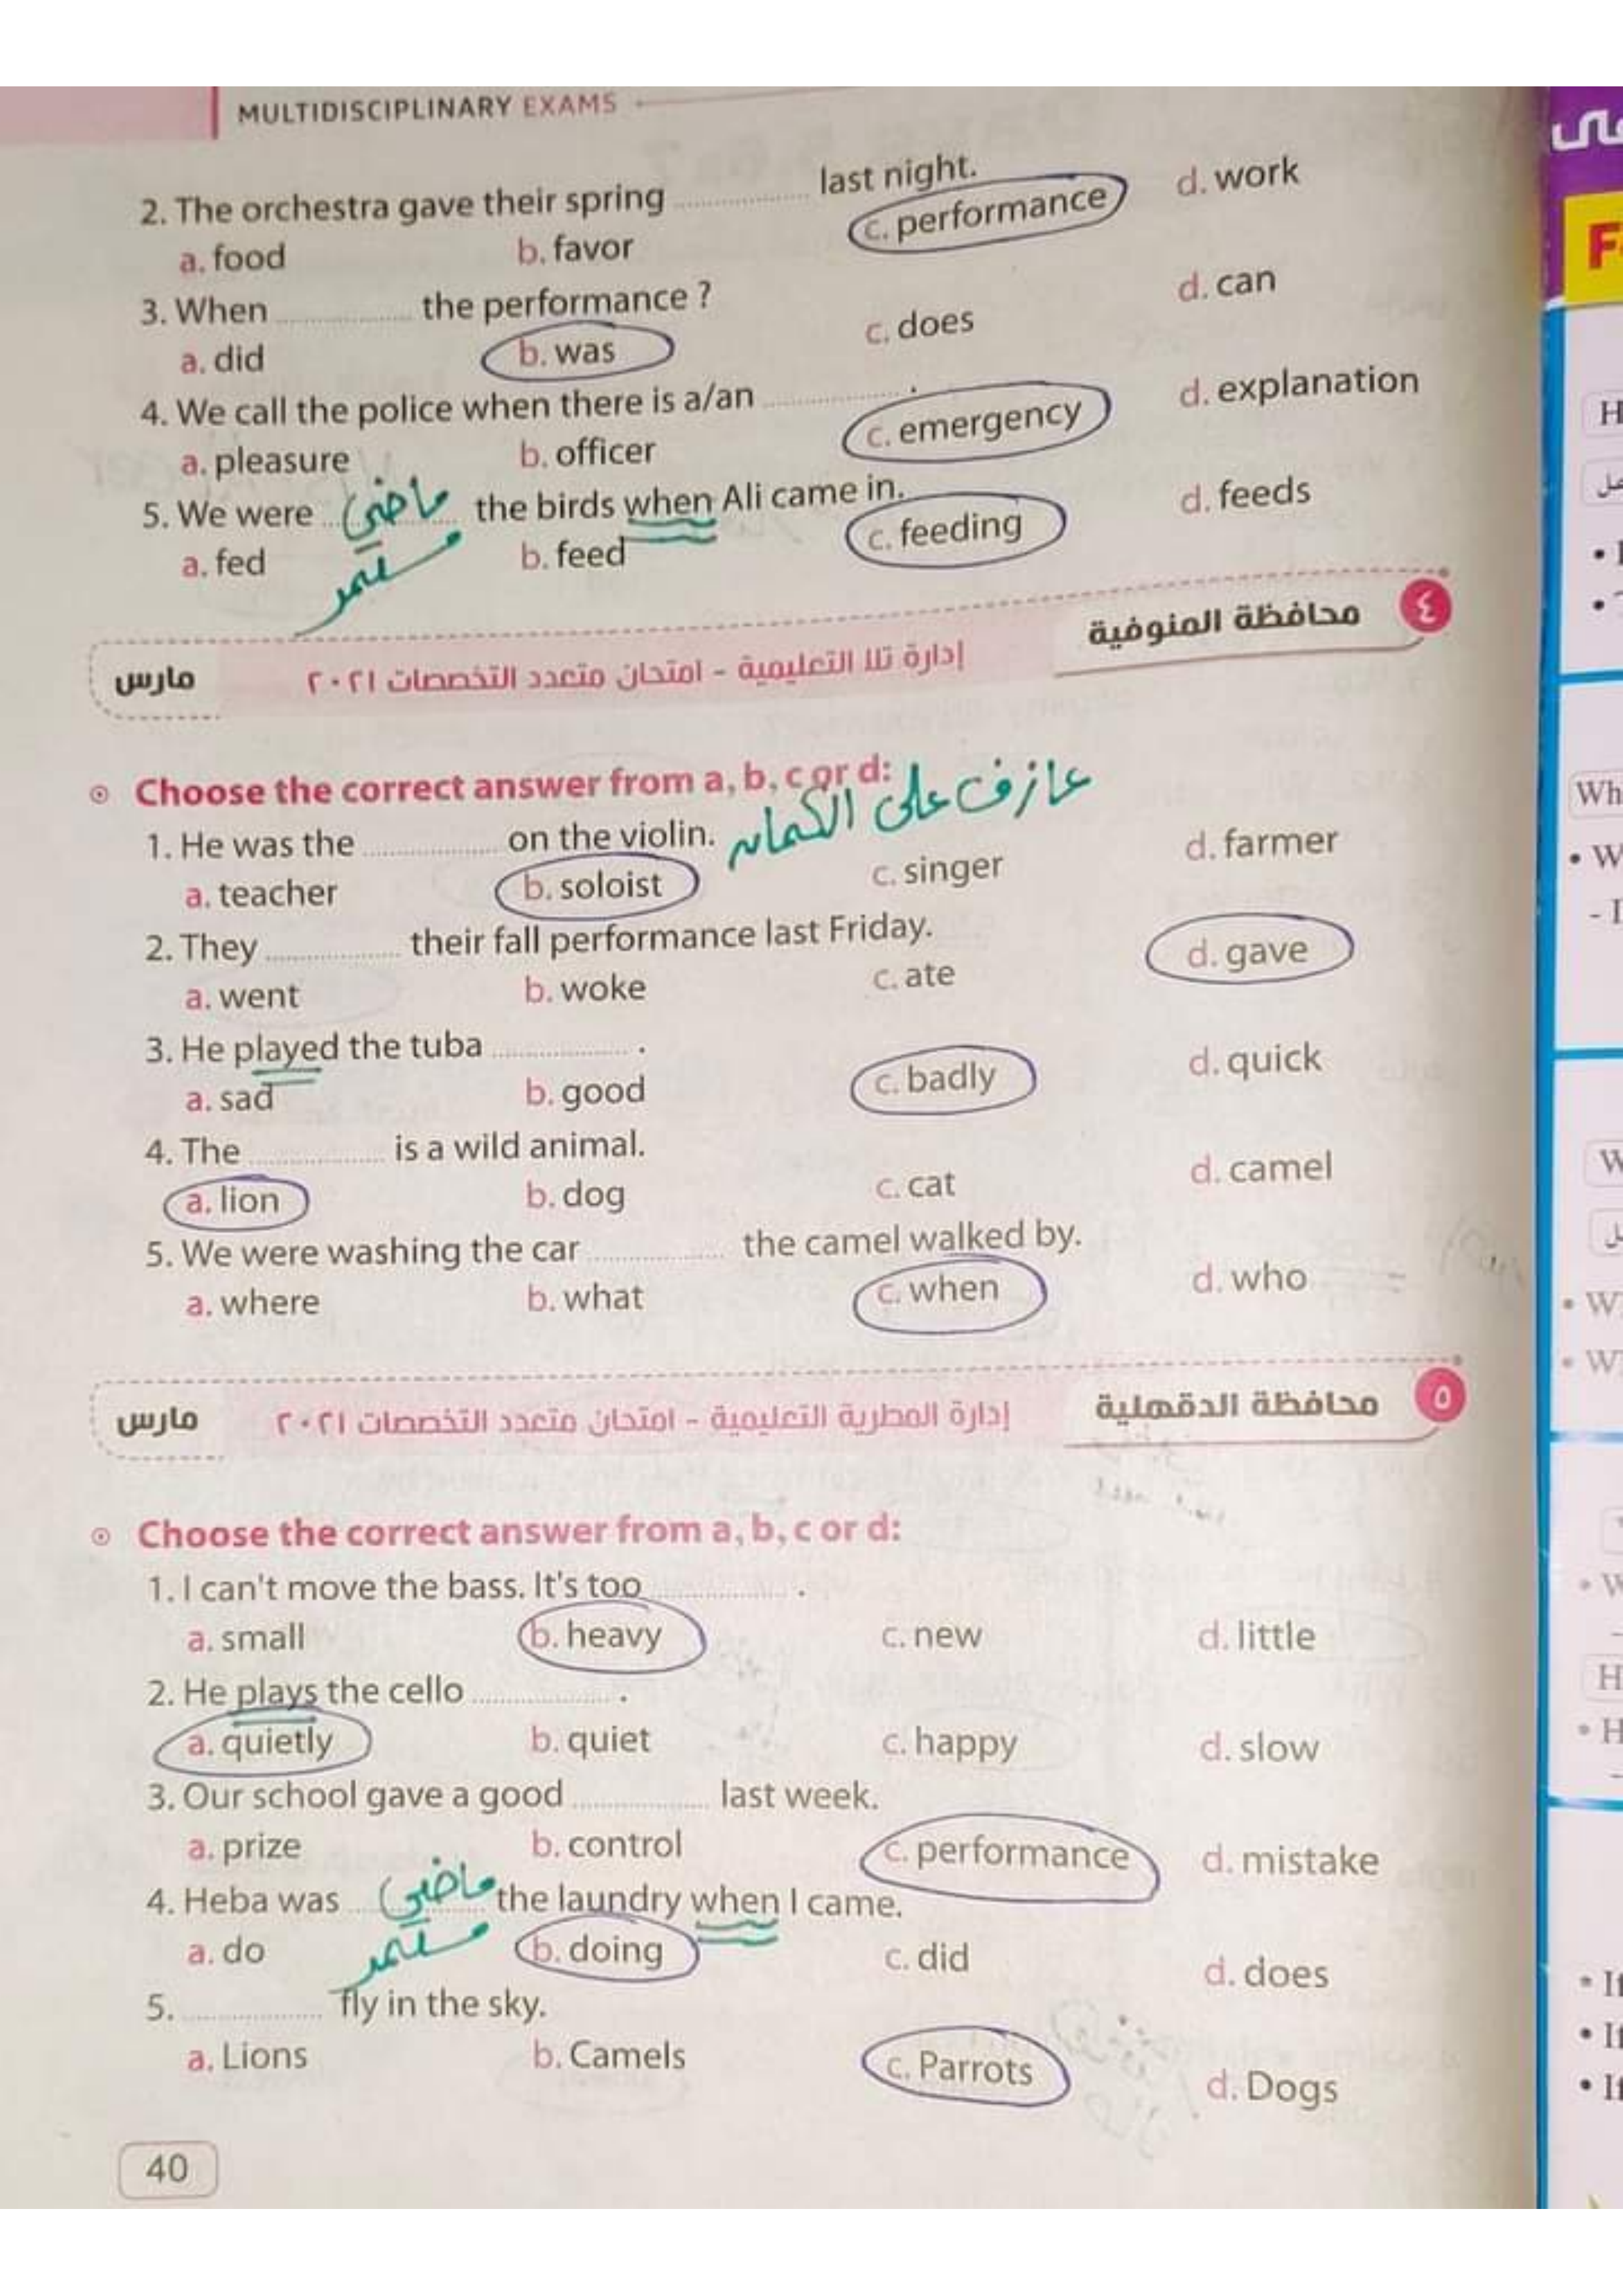 MULTIDISCIPLINARY EXAMS
2. The orchestra gave their spring ............ last night.
a. food b. favor c. performance d. work
3. When ............ the performance ?
a. did b. was c. does d. can
4. We call the police when there is a/an ............ .
a. pleasure b. officer c. emergency d. explanation
5. We were ............ the birds when Ali came in.
ماضي
مستمر
a. fed b. feed c. feeding d. feeds
٤ محافظة المنوفية
إدارة تلا التعليمية - امتحان متعدد التخصصات ٢٠٢١
مارس
Choose the correct answer from a, b, c or d:
عازف على الكمان
1. He was the ............ on the violin.
a. teacher b. soloist c. singer d. farmer
2. They ............ their fall performance last Friday.
a. went b. woke c. ate d. gave
3. He played the tuba ............ .
a. sad b. good c. badly d. quick
4. The ............ is a wild animal.
a. lion b. dog c. cat d. camel
5. We were washing the car ............ the camel walked by.
a. where b. what c. when d. who
٥ محافظة الدقهلية
إدارة المطرية التعليمية - امتحان متعدد التخصصات ٢٠٢١
مارس
Choose the correct answer from a, b, c or d:
1. I can't move the bass. It's too ............ .
a. small b. heavy c. new d. little
2. He plays the cello ............ .
a. quietly b. quiet c. happy d. slow
3. Our school gave a good ............ last week.
a. prize b. control c. performance d. mistake
4. Heba was ............ the laundry when I came.
ماضي
مستمر
a. do b. doing c. did d. does
5. ............ fly in the sky.
a. Lions b. Camels c. Parrots d. Dogs
40